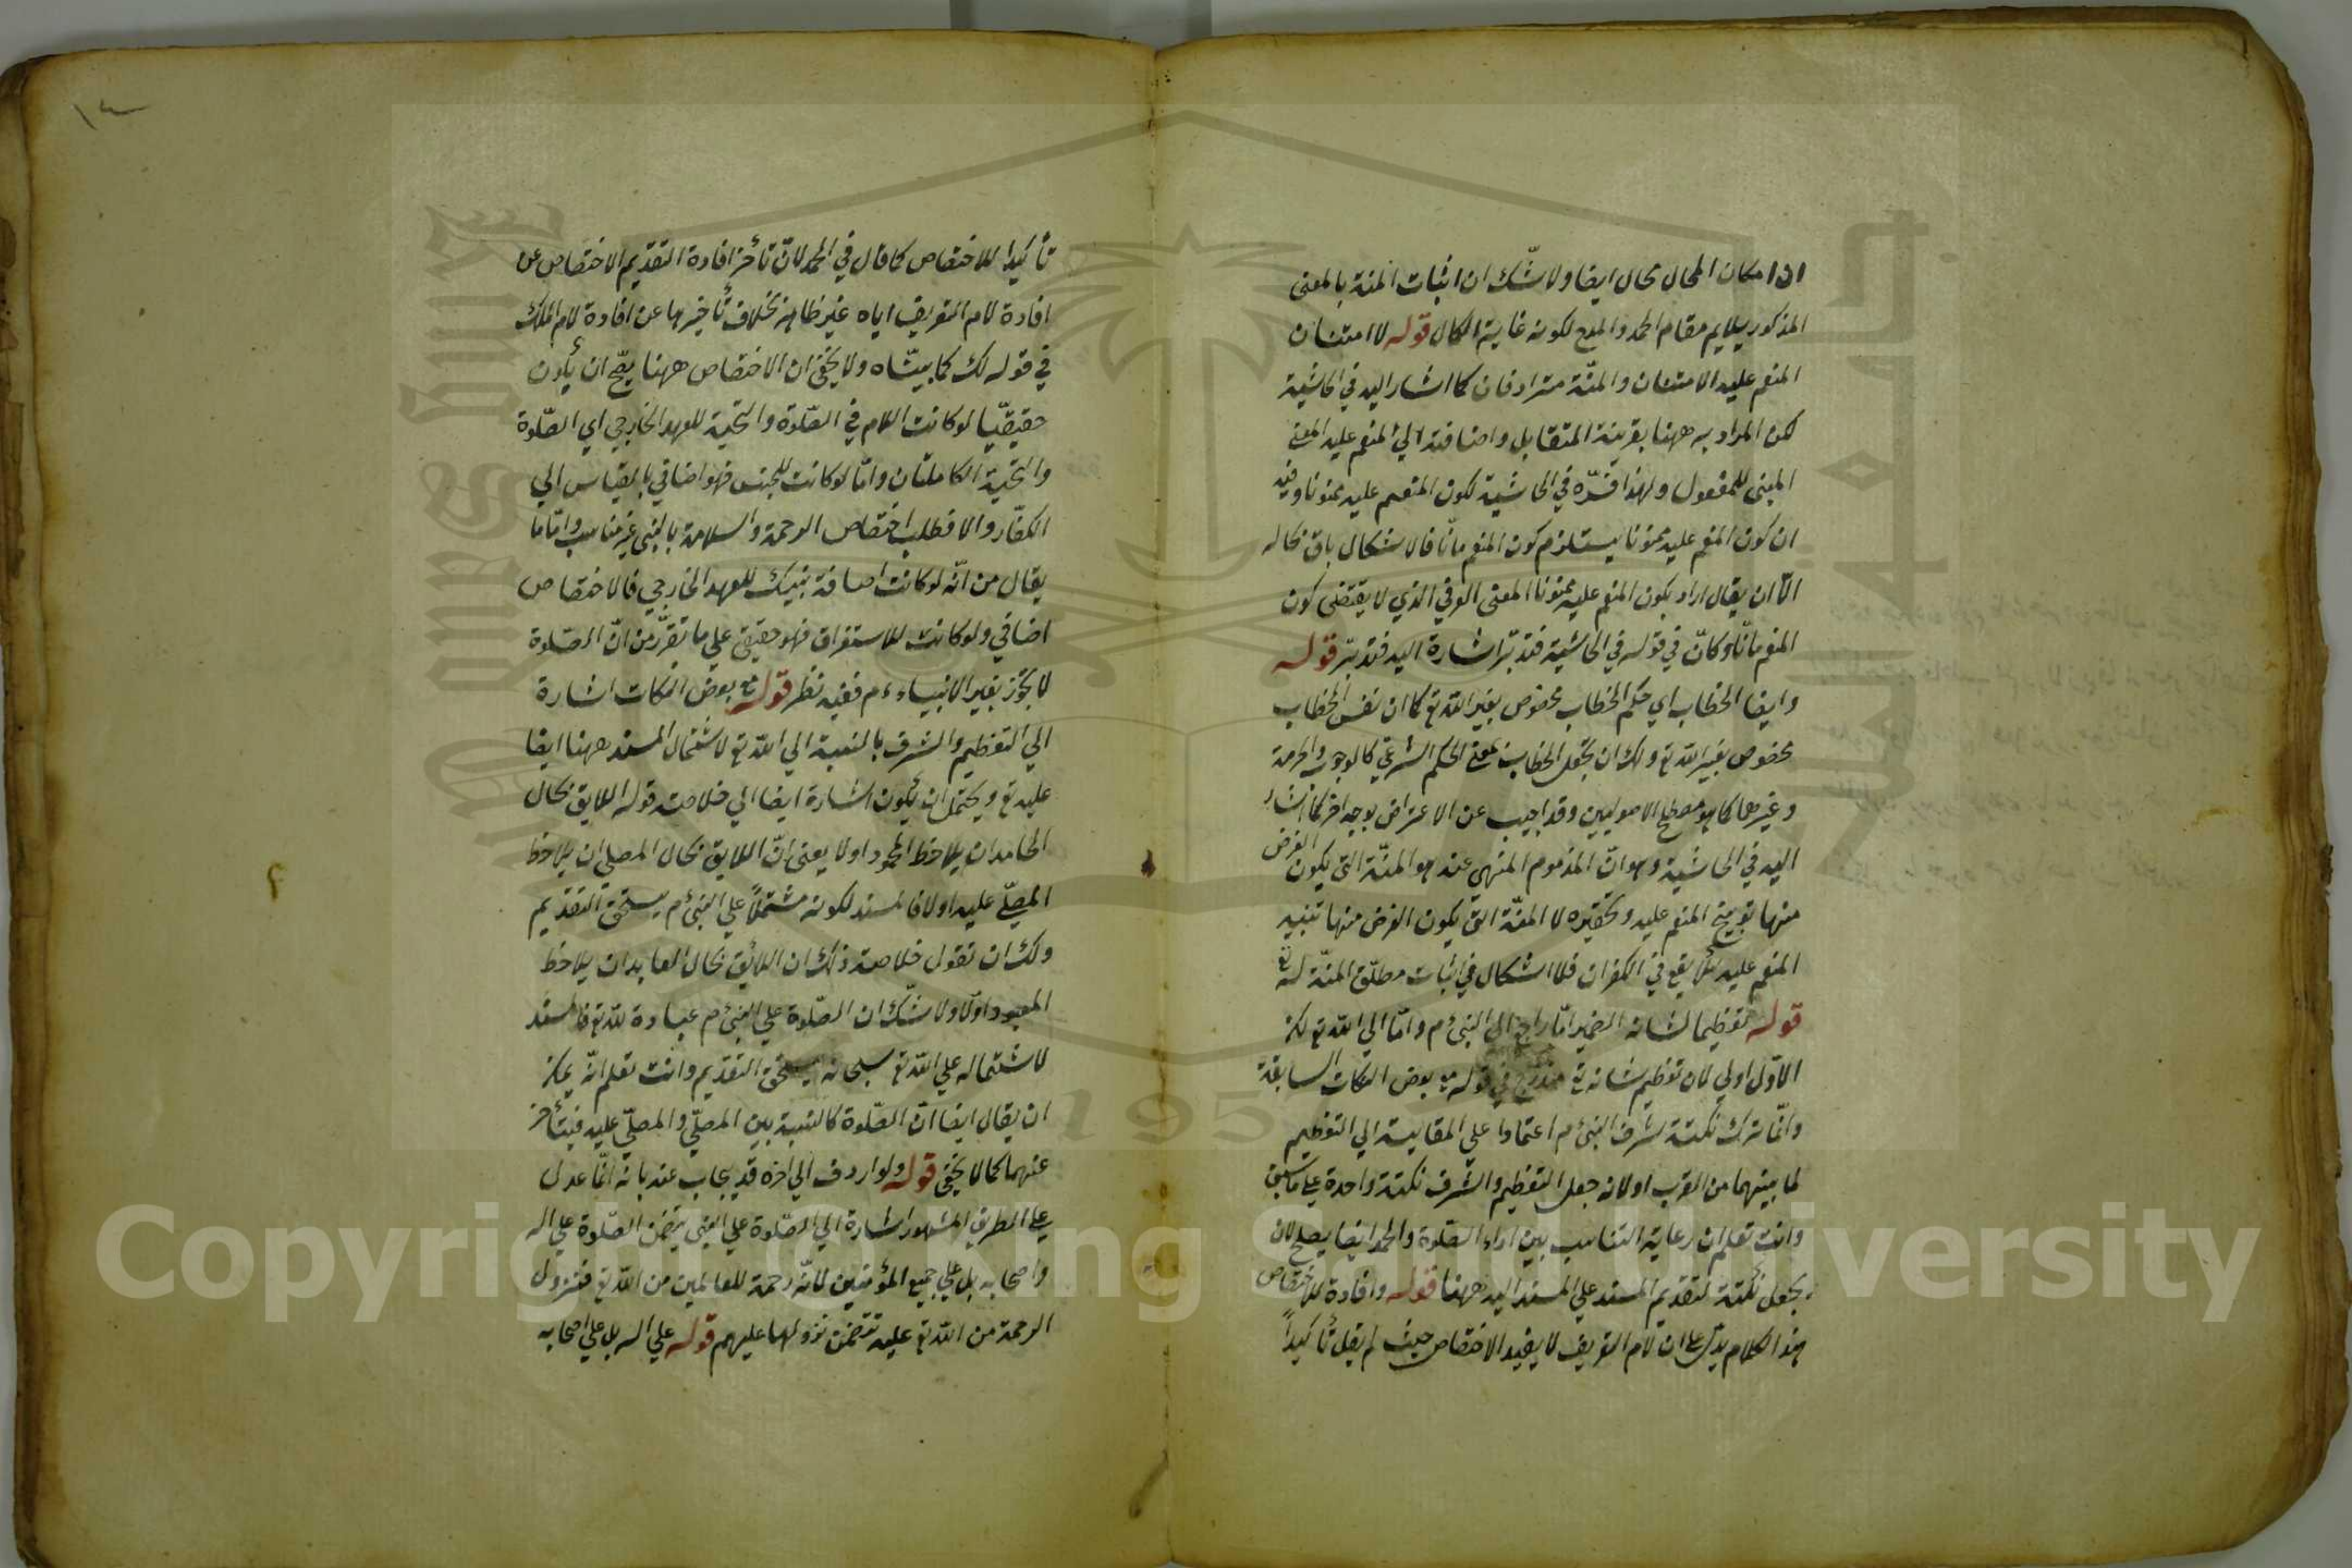 اذا مكان المحال محال ايضا ولا شّك ان اثبات المنة بالمعنى
المذكور يلايم مقام الحمد والمدح لكونه غاية الكمال قوله لا امتنان
المنعم عليه الامتنان والمنّة مترادفان كما اشار اليه في الحاشية
لكن المراد به ههنا بقرينة المتقابل واضافته الي المنعم عليه المعنى
المبنى للمفعول ولهذا فسّره في الحاشية لكون المنعم عليه ممنونا وفيه
ان كون المنعم عليه ممنونا يستلزم كون المنعم مانّا فالاشكال باق بحاله
الاّ ان يقال اراد بكون المنعم عليه ممنونا المعنى العرفي الذي لا يقتضى كون
المنعم مانّا وكانّ في قوله في الحاشية فتدبّر اشارة اليه فتدبّر قوله
وايضا الخطاب اي حكم الخطاب مخصوص بغير الله تع كما ان نفس الخطاب
مخصوص بغير الله تع ولك ان تجعل الخطاب بمعنى الحكم الشرعي كالوجوب والحرمة
وغيرهما كما هو مصطلح الاصوليين وقد اجيب عن الاعتراض بوجه اخر كما اشار
اليه في الحاشية وهو انّ المذموم المنهي عنه هو المنّة التى يكون الغرض
منها توبيخ المنعم عليه وتحقيره لا المنّة التى يكون الغرض منها تنبيه
المنعم عليه لئلا يقع في الكفران فلا اشكال في اثبات مطلق المنّة له تع
قوله تعظيما لشانه الضمير امّا راجع الى النبى م وامّا الي الله تع لكن
الاوّل اولي لان تعظيم شانه تع مندرج في قوله مع بعض النكات السابقة
وانّما ترك نكتة شرف النبى م اعتمادا علي المقايسة الي التعظيم
لما بينهما من القرب او لانه جعل التعظيم والشرف نكتة واحدة علي ما سبق
وانت تعلم ان رعاية التناسب بين اداء الصّلوة والحمد ايضا يصلح لان
يجعل نكتة لتقديم المسند علي المسند اليه ههنا قوله وافادة للاختصاص
هذا الكلام يدّل علي ان لام التعريف لا يفيد الاختصاص حيث لم يقل تأكيداً
١٤
تأكيدا للاختصاص كما قال في الحمد لانّ تأخر افادة التقديم الاختصاص عن
افادة لام التعريف اياه غير ظاهر بخلاف تأخيرها عن افادة لام الملك
في قوله لك كما بيّنّاه ولا يخفى ان الاختصاص ههنا يصّح ان يكون
حقيقيّا لو كانت اللام في الصّلوة والتحّية للعهد الخارجي اي الصّلوة
والتحّية الكاملتان وامّا لو كانت للجنس فهو اضافي بالقياس الي
الكفّار والا فطلب اختصاص الرحمة والسلامة بالنبى غير مناسب وامّا ما
يقال من انّه لو كانت اضافة نبيك للعهد الخارجي فالاختصاص
اضافي ولو كانت للاستغراق فهو حقيقي علي ما تقرّر من انّ الصّلوة
لا يجوز بغير الانبياء ءم ففيه نظر قوله مع بعض النكات اشارة
الي التعظيم والشرف بالنسبة الي الله تع لاشتمال المسند ههنا ايضا
عليه تع ويحتمل ان يكون اشارة ايضا الي خلاصة قوله اللايق بحال
الحامد ان يلاحظ المحمود اولا يعنى انّ اللايق بحال المصلى ان يلاحظ
المصلّي عليه اولا فالمسند لكونه مشتملاً علي النبى م يستحق التقديم
ولك ان تقول خلاصة ذلك ان اللائق بحال العابد ان يلاحظ
المعبود اولا ولا شّك ان الصّلوة علي النبى م عبادة لله تع فالمسند
لاشتماله علي الله تع سبحانه يستحق التقديم وانت تعلم انّه يمكن
ان يقال ايضا انّ الصّلوة كالنسبة بين المصلّي والمصلّي عليه فيتأخر
عنهما كما لا يخفى قوله ولو اردف الي اخره قد يجاب عنه بانه انّما عدل
علي الطريق المشهور اشارة الي الصّلوة علي النبى يتضمن الصّلوة علي اله
واصحابه بل علي جميع المؤمنين لانّه رحمة للعالمين من الله تع فنزول
الرحمة من الله تع عليه تتضمن نزولها عليهم قوله علي اله بل علي اصحابه
Copyright © King Saud University
1957